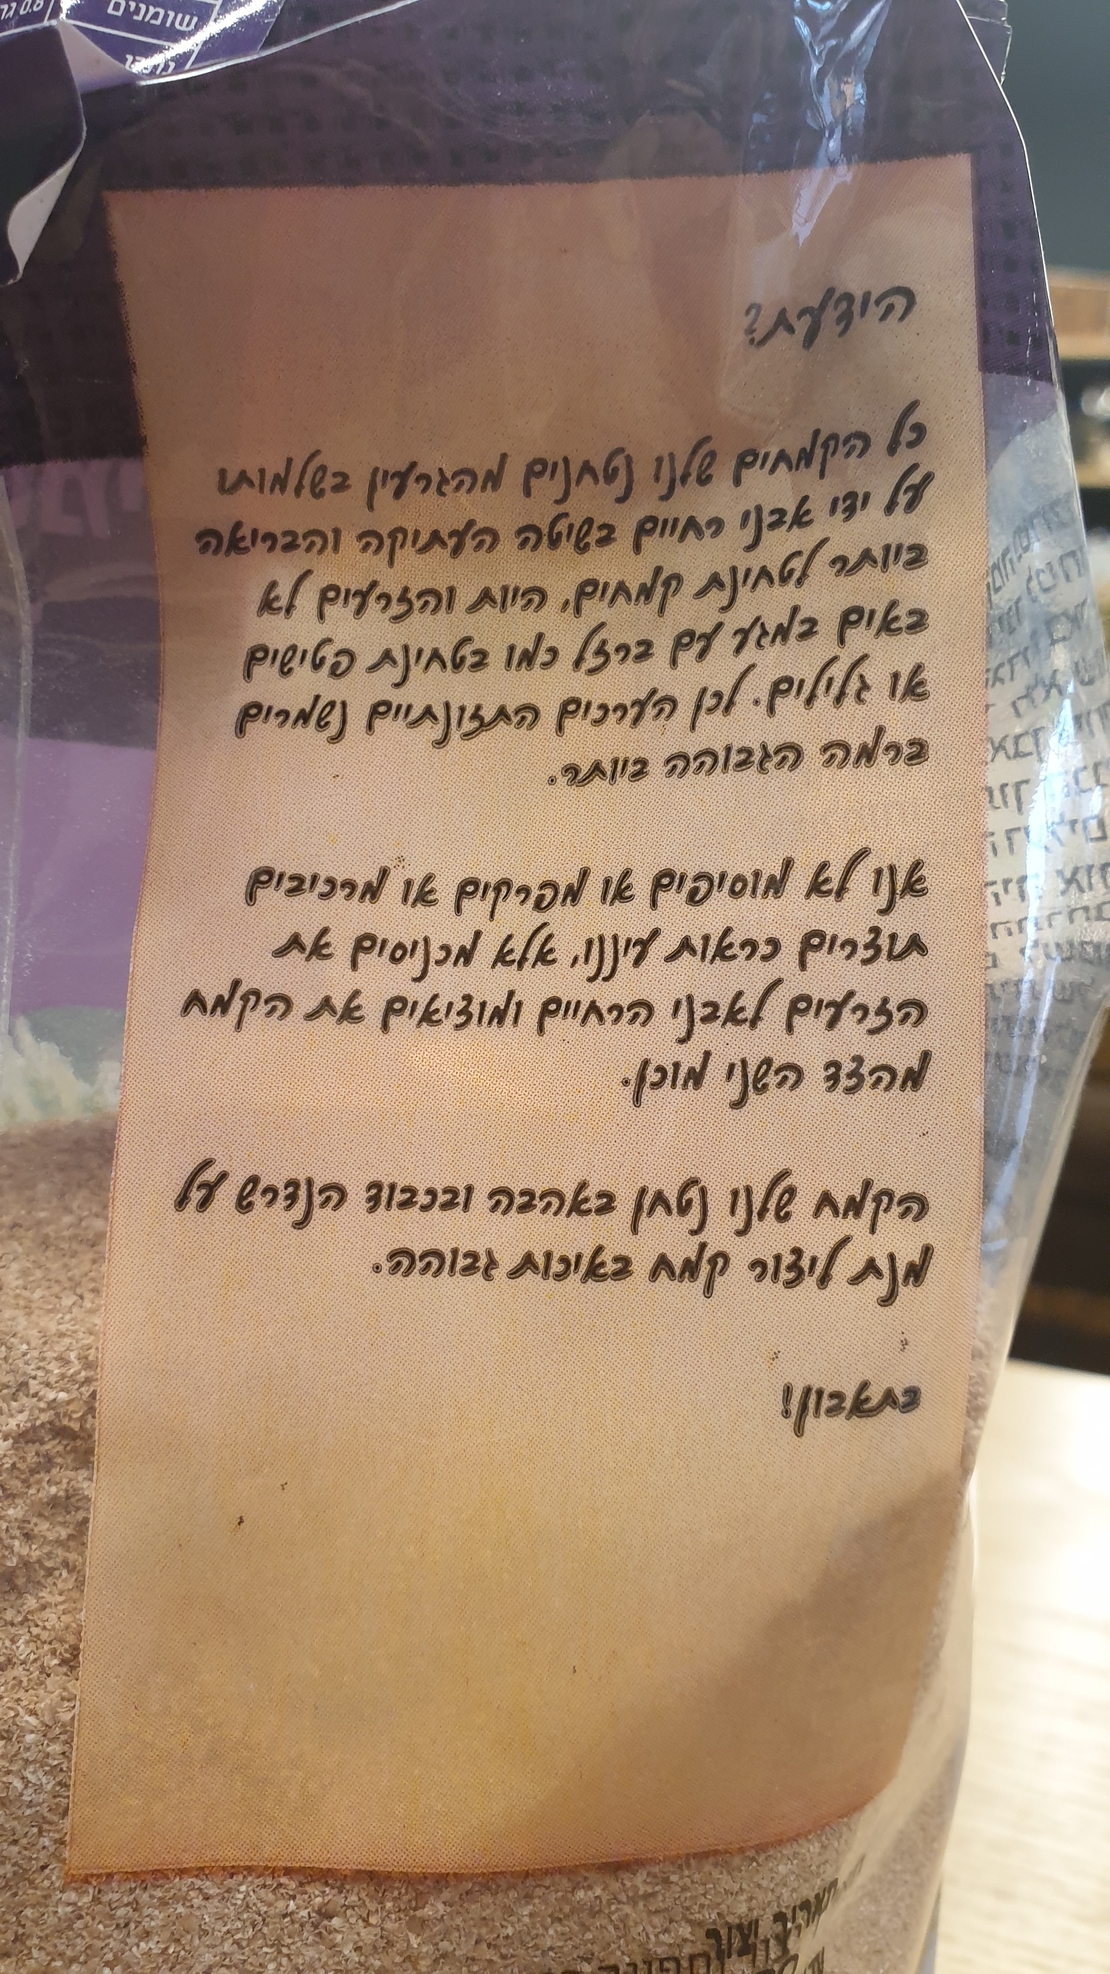 שומנים
הידעת?
כל הקמחים שלנו נטחנים מהגרעין בשלמותו
על ידי אבני רחיים בשיטה העתיקה והבריאה
ביותר לטחינת קמחים, היות והזרעים לא
באים במגע עם ברזל כמו בטחינת פטישים
או גלילים. לכן הערכים התזונתיים נשמרים
ברמה הגבוהה ביותר.
אנו לא מוסיפים או מפרקים או מרכיבים
תוצרים כראות עיננו, אלא מכניסים את
הזרעים לאבני הרחיים ומוציאים את הקמח
מהצד השני מוכן.
הקמח שלנו נטחן באהבה ובכבוד הנדרש על
מנת ליצור קמח באיכות גבוהה.
בתאבון!
תאריך יצור